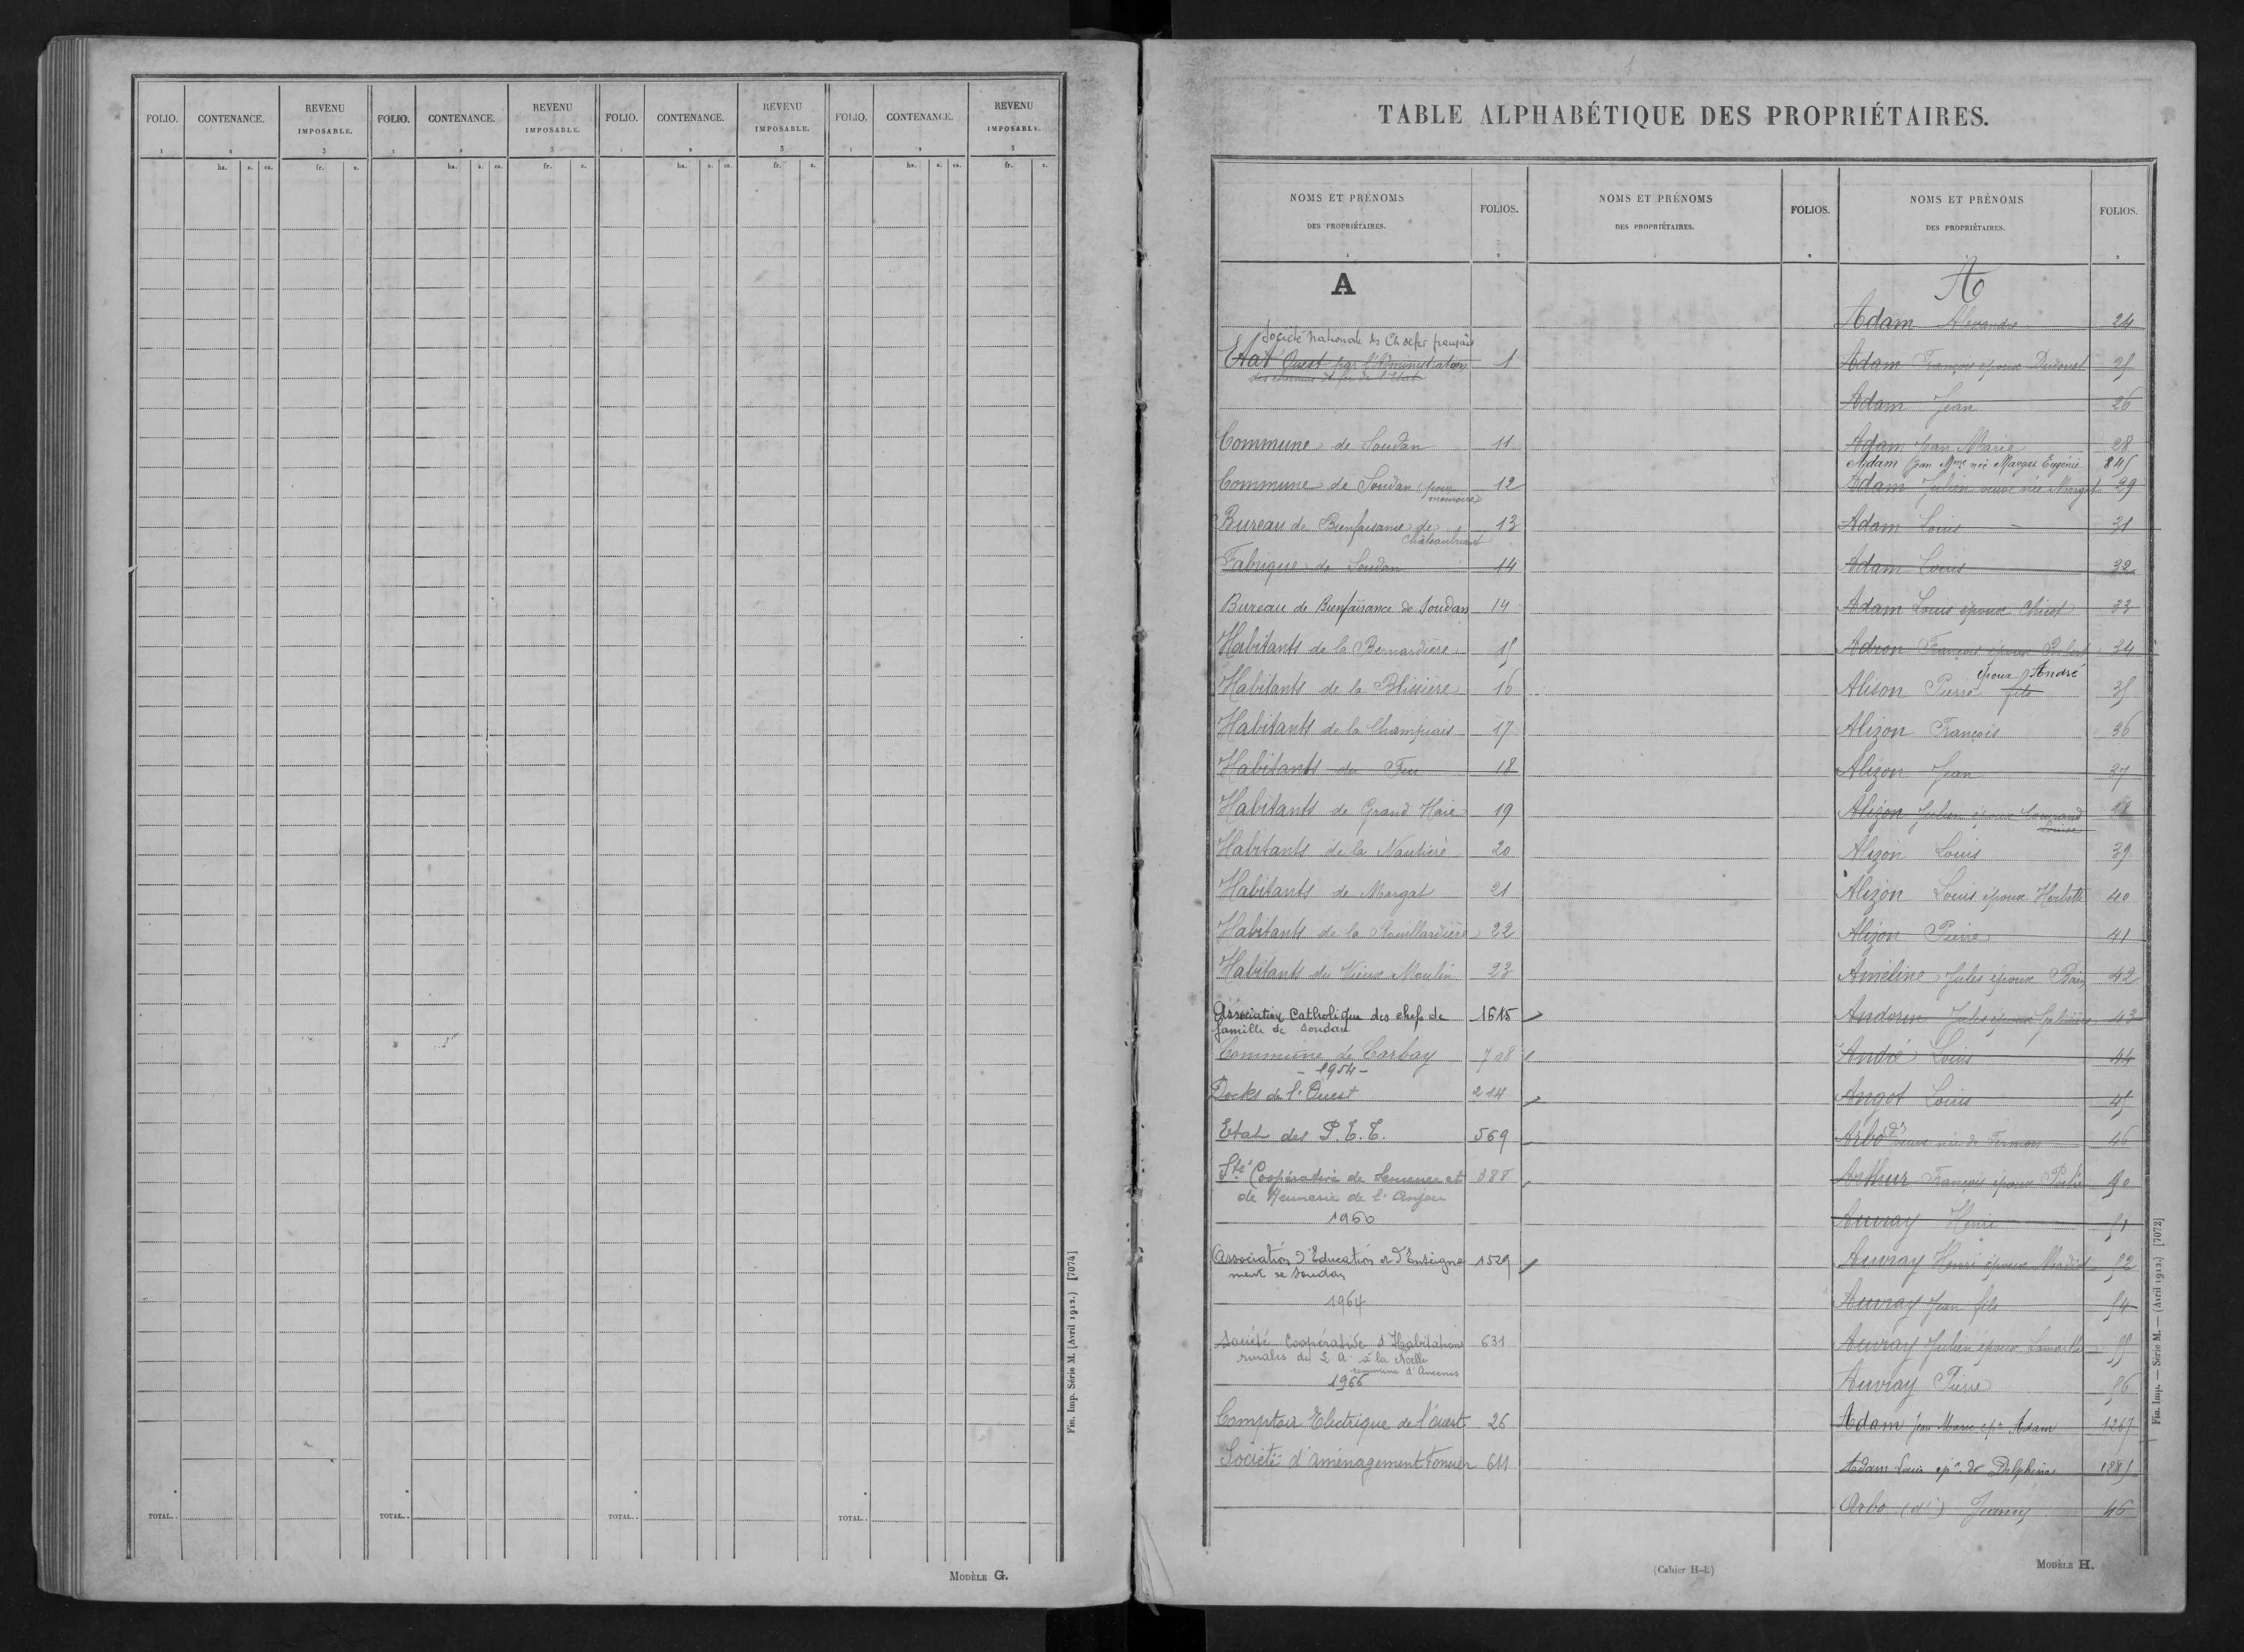 FOLIO. CONTENANCE. REVENU IMPOSABLE. FOLIO. CONTENANCE. REVENU IMPOSABLE. FOLIO. CONTENANCE. REVENU IMPOSABLE. FOLIO. CONTENANCE. REVENU IMPOSABLE.
1 2 3 1 2 3 1 2 3 1 2 3
ha. a. ca. fr. c. ha. a. ca. fr. c. ha. a. ca. fr. c. ha. a. ca. fr. c.
TOTAL.. TOTAL.. TOTAL.. TOTAL..
Modèle G.
Fin. Imp. Série M. (Avril 1912.) [7074]
1
TABLE ALPHABÉTIQUE DES PROPRIÉTAIRES.
NOMS ET PRÉNOMS
DES PROPRIÉTAIRES.
FOLIOS.
A
Société Nationale des Ch de fer français
Etat Ouest par l'Administration 1
des chemins de fer de l'Etat
Commune de Soudan 11
Commune de Soudan (pour 12
mémoire)
Bureau de Bienfaisance de 13
Châteaubriant
Fabrique de Soudan 14
Bureau de Bienfaisance de Soudan 14
Habitants de la Bernardière 15
Habitants de la Blissière 16
Habitants de la Champeais 17
Habitants du Feu 18
Habitants de Grand Haie 19
Habitants de la Nautière 20
Habitants de Margat 21
Habitants de la Rouillardière 22
Habitants du Vieux Moulin 23
Association Catholique des chefs de 1615
famille de Soudan
Commune de Carbay 708
- 1954 -
Docks de l'Ouest 214
Etat des P.T.T. 569
Sté Coopérative de Semence et 388
de Meunerie de l'Anjou
1960
Association d'Education et d'Enseigne 1529
ment de Soudan
1964
Société Coopérative d'Habitations 631
rurales de L A. à la Noelle
commune d'Ancenis
1966
Comptoir Electrique de l'ouest 26
Société d'Aménagement Foncier 611
NOMS ET PRÉNOMS
DES PROPRIÉTAIRES.
FOLIOS.
NOMS ET PRÉNOMS
DES PROPRIÉTAIRES.
FOLIOS.
A
Adam Alexandre 24
Adam François époux 25
Adam Jean 26
Adam Jean Marie 28
Adam Jean Mme née Margat Eugénie 845
Adam Julien veuve née Margat 29
Adam Louis 31
Adam Louis 32
Adam Louis époux 33
Adron François époux 34
époux André
Alison Pierre fils 35
Alizon François 36
Alizon Jean 37
Alizon Julien époux 38
Louise
Alizon Louis 39
Alizon Louis époux 40
Alizon Pierre 41
Ameline Jules époux 42
Andorin Jules époux 43
André Louis 44
Angot Louis 45
Arbo (d') veuve née de 46
Arthur François époux 50
Auvray Henri 51
Auvray Henri époux 52
Auvray Jean fils 54
Auvray Julien époux 55
Auvray Pierre 56
Adam Jean Marie epx Adam 1267
Adam Louis epx de Delphine 1285
Arbo (d') Jeanny 46
(Cahier H-1.)
Modèle H.
Fin. Imp. — Série M. — (Avril 1912.) [7072]